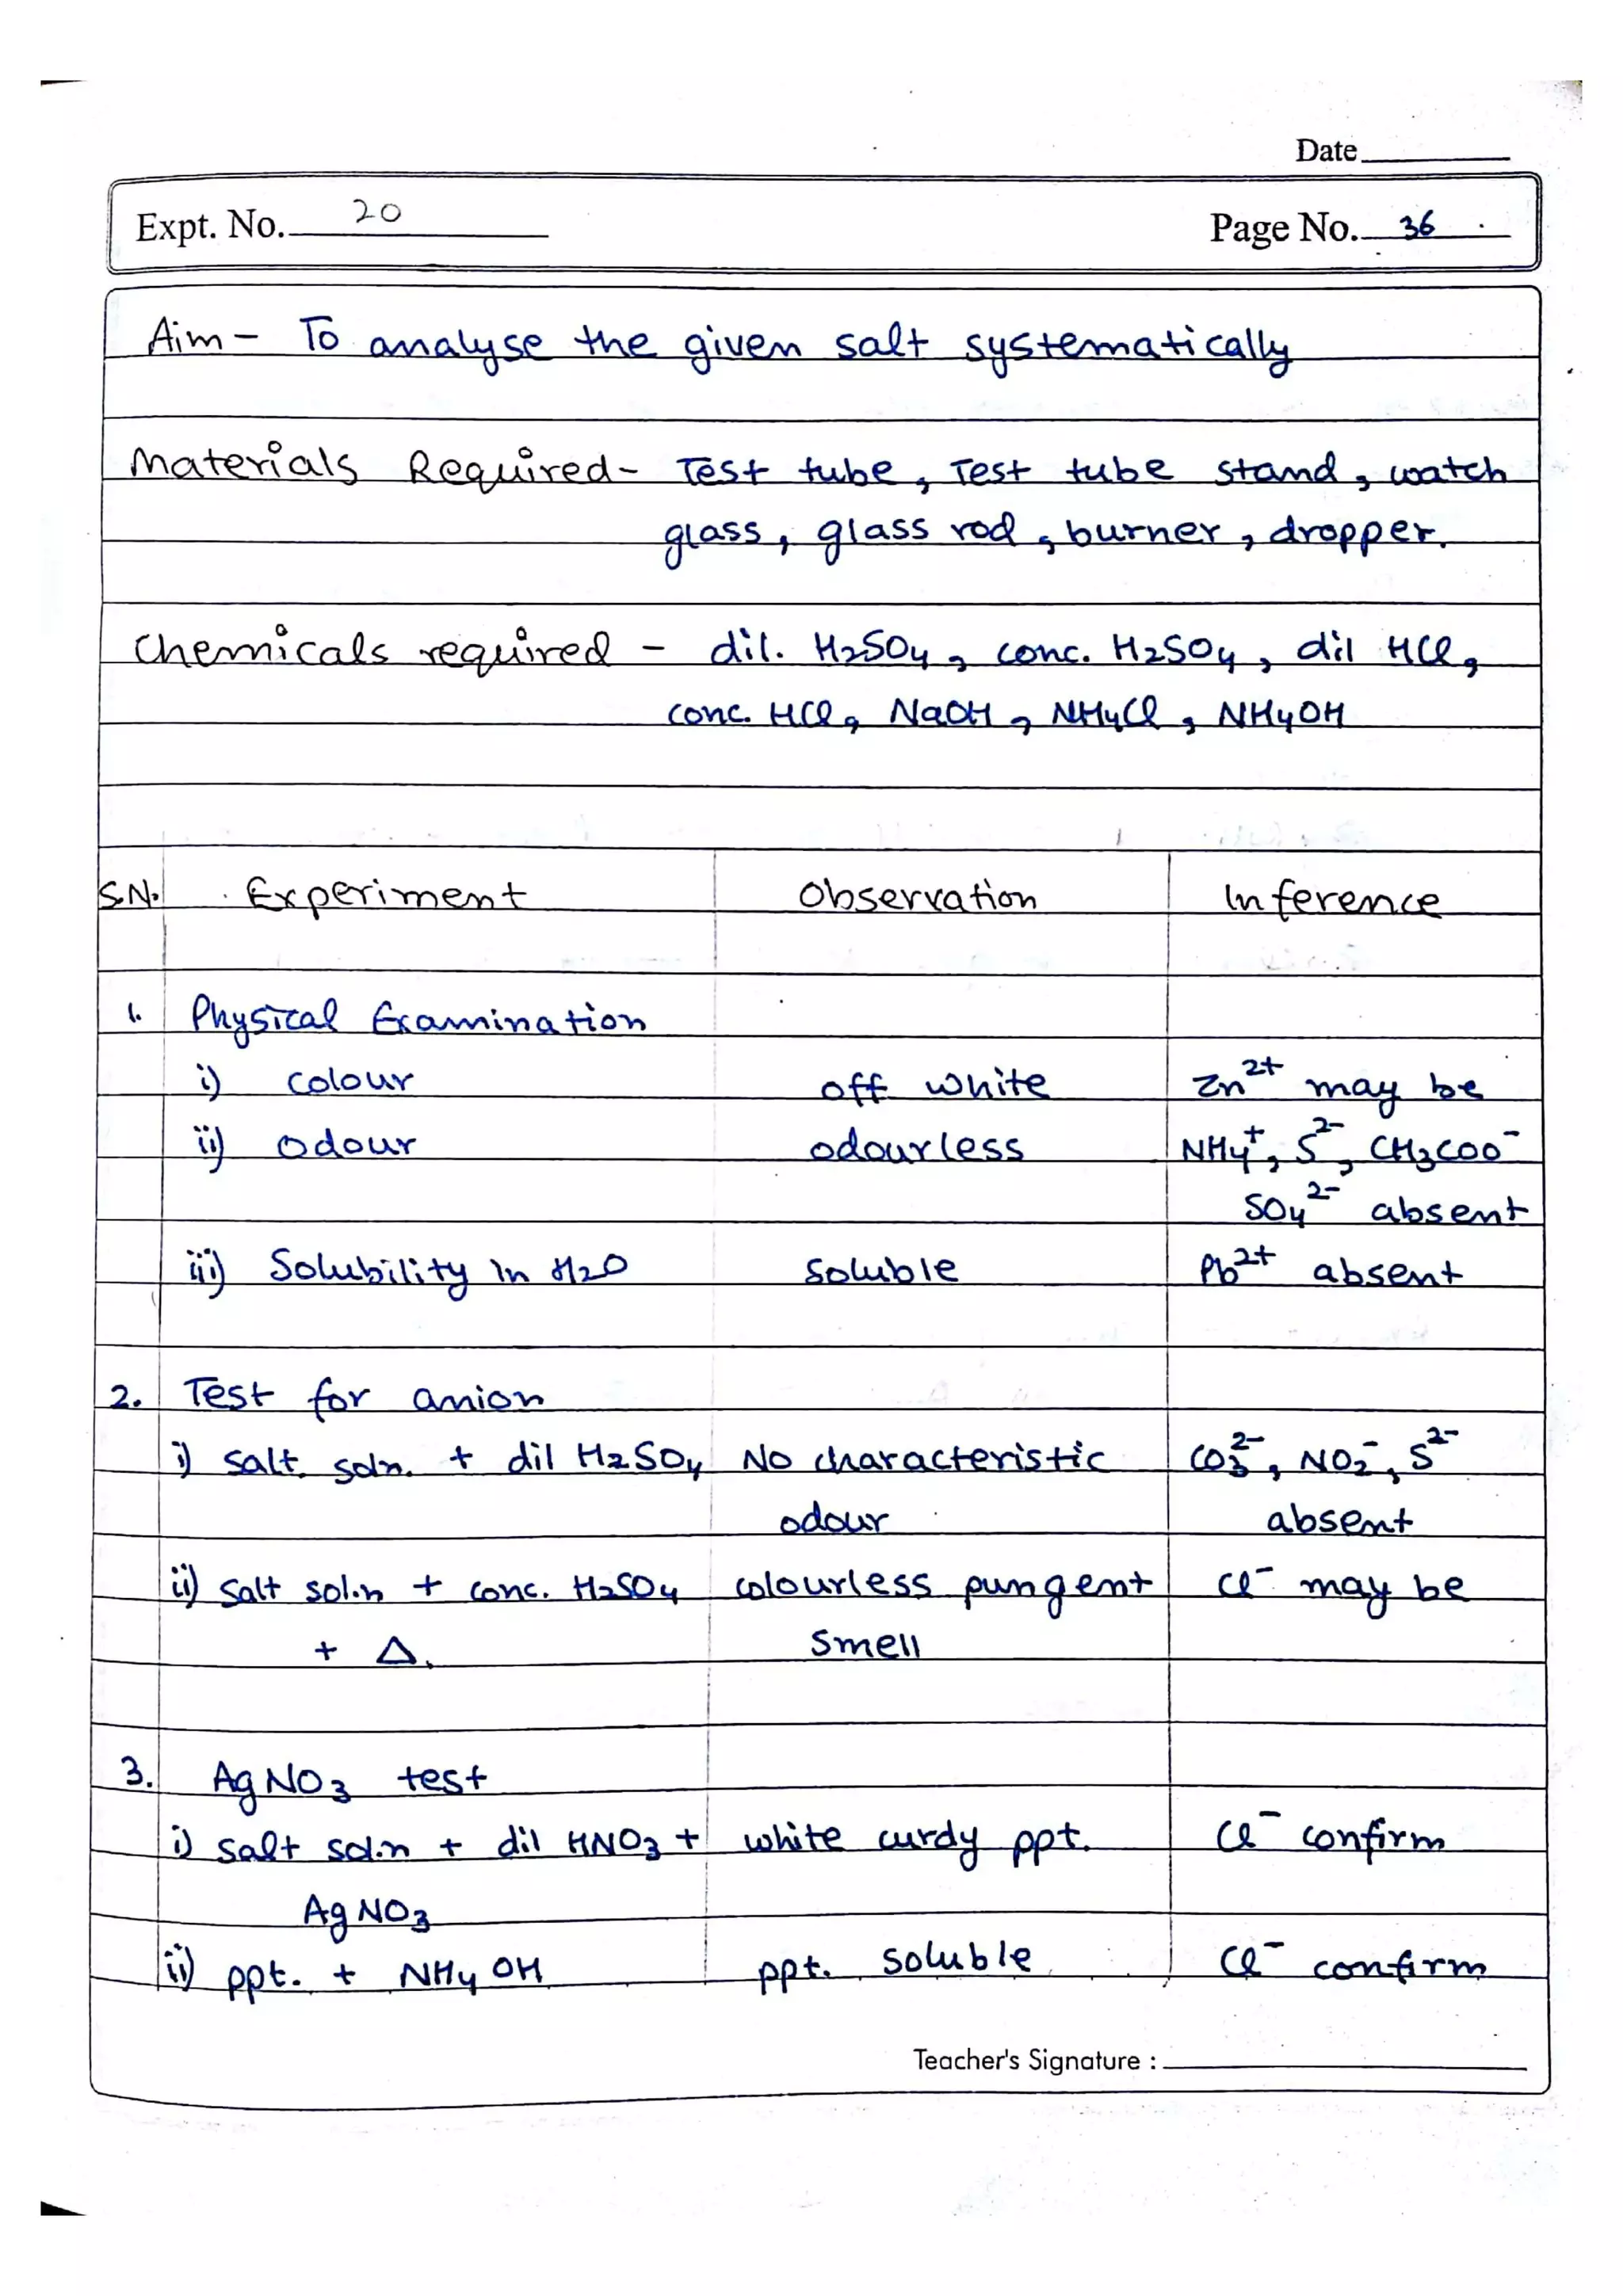 Date
Expt. No. 20 Page No. 36
Aim - To analyse the given salt systematically
Materials Required - Test tube, Test tube stand, watch
glass, glass rod, burner, dropper.
Chemicals required - dil. H2SO4, conc. H2SO4, dil HCl,
conc. HCl, NaOH, NH4Cl, NH4OH
S.N. Experiment Observation Inference
1. Physical Examination
i) colour off white Zn²⁺ may be
ii) odour odourless NH4⁺, S²⁻, CH3COO⁻
SO4²⁻ absent
iii) Solubility in H2O soluble Pb²⁺ absent
2. Test for anion
i) salt. soln. + dil H2SO4 No characteristic CO3²⁻, NO2⁻, S²⁻
odour absent
ii) salt sol.n + conc. H2SO4 colourless pungent Cl⁻ may be
+ Δ. smell
3. AgNO3 test
i) salt sol.n + dil HNO3 + white curdy ppt. Cl⁻ confirm
AgNO3
ii) ppt. + NH4OH ppt. soluble Cl⁻ confirm
Teacher's Signature :